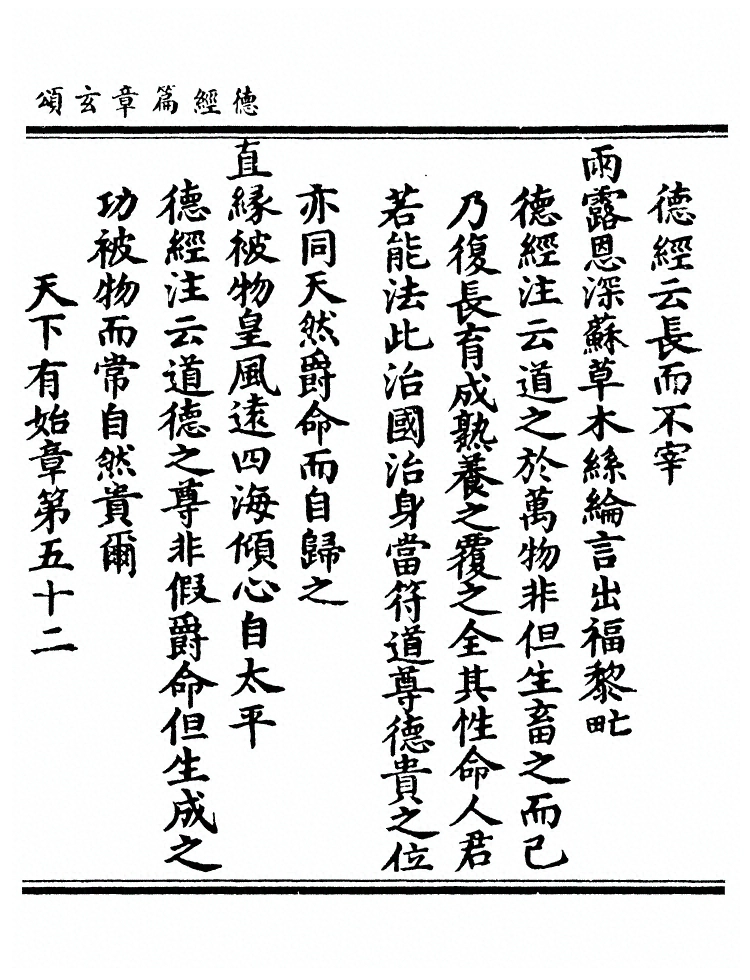 德經篇章玄頌
德經云長而不宰
雨露恩深蘇草木絲綸言出福黎甿
德經注云道之於萬物非但生畜之而已
乃復長育成熟養之覆之全其性命人君
若能法此治國治身當符道尊德貴之位
亦同天然爵命而自歸之
直緣被物皇風遠四海傾心自太平
德經注云道德之尊非假爵命但生成之
功被物而常自然貴爾
天下有始章第五十二